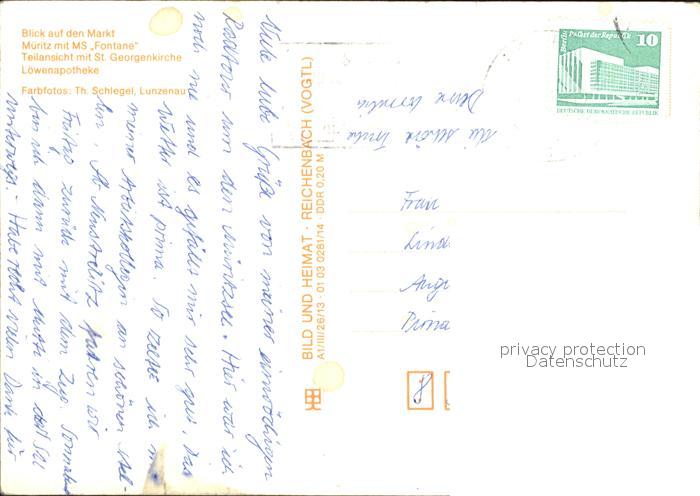 Blick auf den Markt
Müritz mit MS „Fontane"
Teilansicht mit St. Georgenkirche
Löwenapotheke
Farbfotos: Th. Schlegel, Lunzenau
Viele liebe Grüße von meiner eintägigen
Radtour um den Müritzsee. Hier war ich
noch nie und es gefällt mir sehr gut. Das
Wetter ist prima. So zelte ich m
meinen Arbeitskollegen an schönen Stel-
len. Ab Neustrelitz fahren wir
Freitag zurück mit dem Zug. Sonnabend
bin ich dann mit Mutti in der
unterwegs. - Habe recht vielen Dank für
die schöne Karte
Deine
BILD UND HEIMAT · REICHENBACH (VOGTL)
A1/III/26/13 · 01 03 0281/14 · DDR 0,20 M
Berlin · Palast der Republik
10
DEUTSCHE DEMOKRATISCHE REPUBLIK
Frau
Linde
Pirna
8
privacy protection
Datenschutz